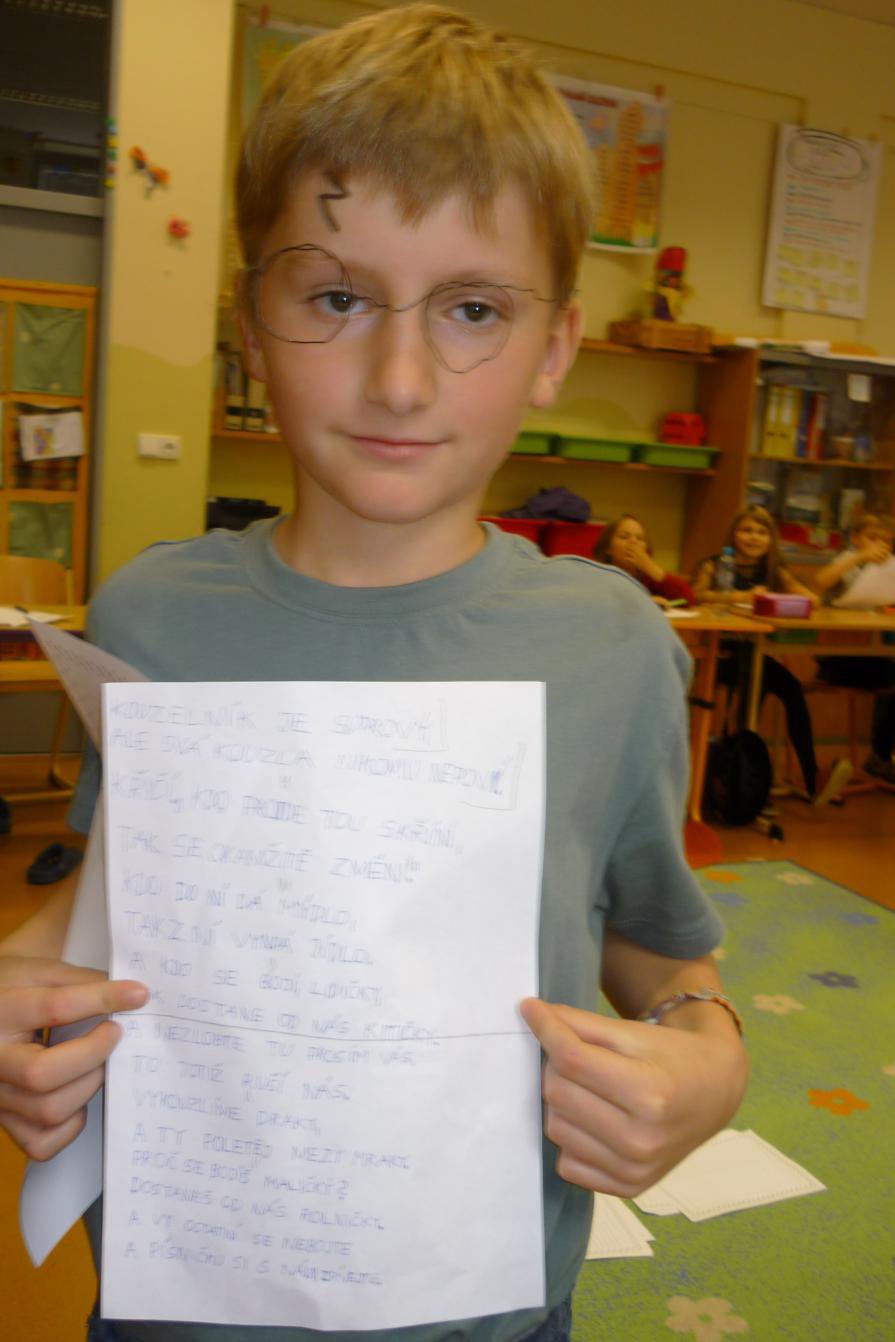 KOUZELNÍK JE SPROVÝ,
ALE SVÁ KOUZLA NIKOMU NEPOVÍ.
KŘIČÍ, KDO PROJDE TOU SKŘÍNÍ,
TAK SE OKAMŽITĚ ZMĚNÍ!"
KDO DO NÍ DÁ MÝDLO,
TAK Z NÍ VYNDÁ JÍDLO.
A KDO SE BOJÍ, LIDIČKY,
DOSTANE OD NÁS KYTIČKY.
A NEZLOBTE TU PROSÍM VÁS,
TO TOTIŽ RUŠÍ NÁS.
VYKOUZLÍME DRAKY,
A TY POLETĚJ MEZY MRAKY.
PROČ SE BOJÍŠ MALIČKÝ?
DOSTANEŠ OD NÁS ROLNIČKY.
A VY OSTATNÍ SE NEBOJTE
A PÍSNIČKU SI S NÁMI ZPÍVEJTE.